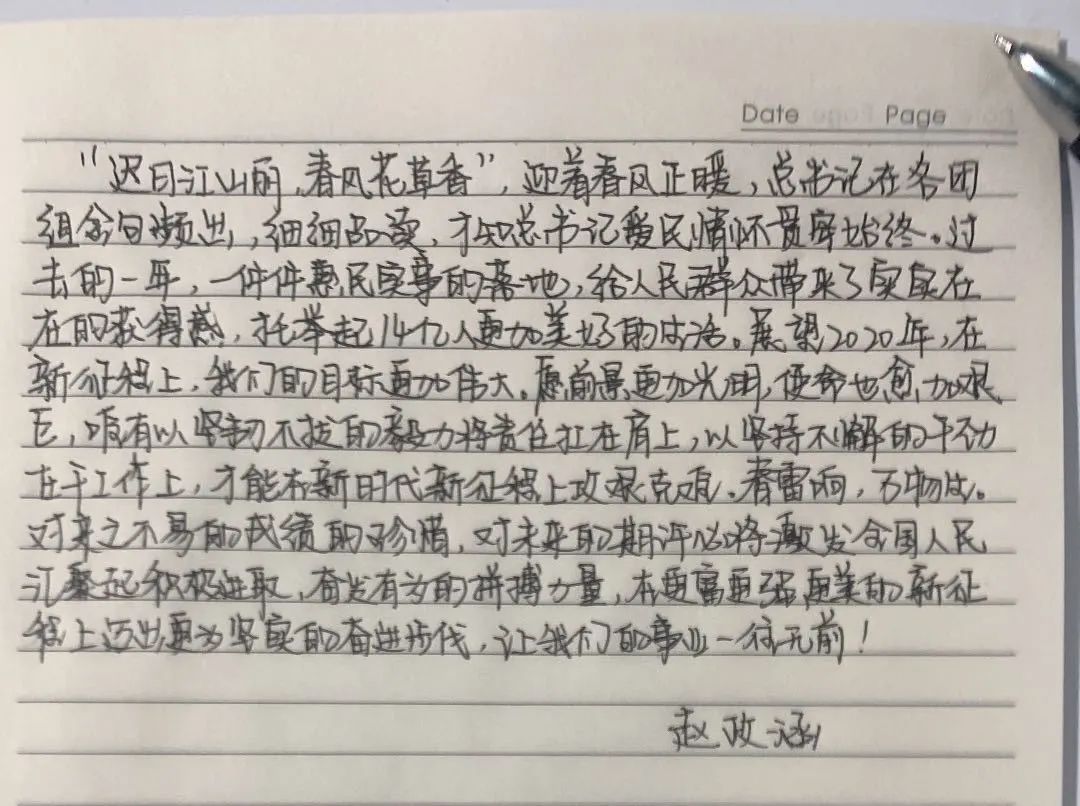 Date Page
“迟日江山丽,春风花草香”,迎着春风正暖,总书记在各团
组金句频出,细细品读,才知总书记爱民情怀贯穿始终。过
去的一年,一件件惠民实事的落地,给人民群众带来了实实在
在的获得感,托举起14亿人更加美好的生活。展望2020年,在
新征程上,我们的目标更加伟大。愿前景更加光明,使命也愈加艰
巨,唯有以坚韧不拔的毅力将责任扛在肩上,以坚持不懈的干劲
在干工作上,才能在新时代新征程上攻艰克难。春雷响,万物生。
对来之不易的成绩的珍惜,对未来的期许必将激发全国人民
汇聚起积极进取,奋发有为的拼搏力量,在更富更强更美的新征
程上迈出更为坚实的奋进步伐,让我们的事业一往无前!
赵政涵